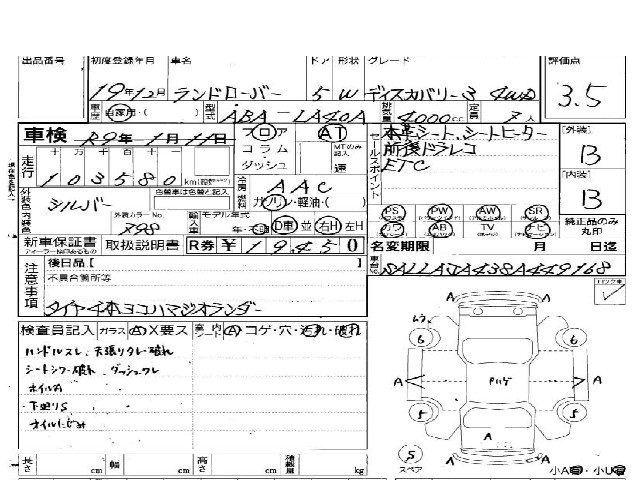 出品番号 初度登録年月 車名 ドア 形状 グレード 評価点
19年12月 ランドローバー 5 W ディスカバリー3 4WD 3.5
車歴 自家用・( ) 型式 ABA-LA40A 排気量 4000cc 定員 7人
車検 R9年1月11日 フロア AT
コラム MTのみ記入
ダッシュ 速
走行 十万千百十一
103580 km
冷房 AAC
燃料 ガソリン・軽油・( )
外装色 シルバー 外装カラーNo. 798
内装色
色替車は色替と記入
輸入車 モデル年式 年・不明 D車 並 右H 左H
新車保証書 取扱説明書 R券 ¥19450
セールスポイント 本革シート、シートヒーター
前後ドラレコ
ETC
PS PW AW SR
カワ AB TV ナビ
[外装] B
[内装] B
純正品のみ丸印
名変期限 月 日迄
車台No. SALLAJA438A449168
注意事項 後日品【 】
不具合箇所等
タイヤ4本ヨコハマジオランダー
検査員記入 ガラス A X要ス 車内シート A コゲ・穴・汚れ・破れ
ハンドルスレ、天張りタレ破れ
シートシワ破れ、ダッシュワレ
ホイルA
下廻りS
オイルにじみ
6 6
A A A
5 5
A
5
スペア
長さ cm 幅 cm 高さ cm 積載量 kg
小A・小U